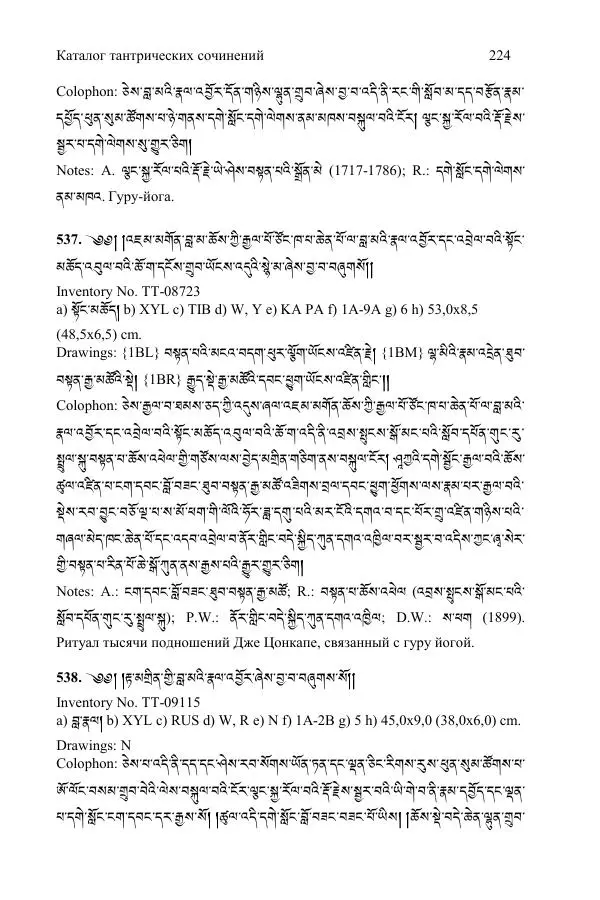 Каталог тантрических сочинений 224
Colophon: ཅེས་བླ་མའི་རྣལ་འབྱོར་དོན་གཉིས་ལྷུན་གྲུབ་ཞེས་བྱ་བ་འདི་ནི་རང་གི་སློབ་མ་དད་བརྩོན་རྣམ་
དཔྱོད་ཕུན་སུམ་ཚོགས་པ་ཉེ་གནས་དགེ་སློང་དགེ་ལེགས་ནམ་མཁས་བསྐུལ་བའི་ངོར། ལྕང་སྐྱ་རོལ་པའི་རྡོ་རྗེས་
སྦྱར་པ་དགེ་ལེགས་སུ་གྱུར་ཅིག།
Notes: A. ལྕང་སྐྱ་རོལ་པའི་རྡོ་རྗེ་ཡེ་ཤེས་བསྟན་པའི་སྒྲོན་མེ (1717-1786); R.: དགེ་སློང་དགེ་ལེགས་
ནམ་མཁའ. Гуру-йога.
537. ༄༅། །འཇམ་མགོན་བླ་མ་ཆོས་ཀྱི་རྒྱལ་པོ་ཙོང་ཁ་པ་ཆེན་པོ་ལ་བླ་མའི་རྣལ་འབྱོར་དང་འབྲེལ་བའི་སྟོང་
མཆོད་འབུལ་བའི་ཆོ་ག་དངོས་གྲུབ་ཡོངས་འདུའི་སྙེ་མ་ཞེས་བྱ་བ་བཞུགས་སོ།།
Inventory No. TT-08723
a) སྟོང་མཆོད། b) XYL c) TIB d) W, Y e) KA PA f) 1A-9A g) 6 h) 53,0x8,5
(48,5x6,5) cm.
Drawings: {1BL} བསྟན་པའི་མངའ་བདག་ཕུར་ལྕོག་ཡོངས་འཛིན་རྗེ། {1BM} ལྷ་མིའི་རྣམ་འདྲེན་ཐུབ་
བསྟན་རྒྱ་མཚོའི་སྡེ། {1BR} རྒྱུད་སྡེ་རྒྱ་མཚོའི་དབང་ཕྱུག་ཡོངས་འཛིན་གླིང་།།
Colophon: ཅེས་རྒྱལ་བ་ཐམས་ཅད་ཀྱི་འདུས་ཞལ་འཇམ་མགོན་ཆོས་ཀྱི་རྒྱལ་པོ་ཙོང་ཁ་པ་ཆེན་པོ་ལ་བླ་མའི་
རྣལ་འབྱོར་དང་འབྲེལ་བའི་སྟོང་མཆོད་འབུལ་བའི་ཆོ་ག་འདི་ནི་འབྲས་སྤུངས་སྒོ་མང་པའི་སློབ་དཔོན་གུང་རུ་
སྤྲུལ་སྐུ་བསྟན་པ་ཆོས་འཕེལ་གྱི་གཙོས་ལས་བྱེད་མགྲིན་གཅིག་ནས་བསྐུལ་ངོར། ཤཱཀྱའི་དགེ་སློང་རྒྱལ་བའི་ཆོས་
ཚུལ་འཛིན་པ་ངག་དབང་བློ་བཟང་ཐུབ་བསྟན་རྒྱ་མཚོ་འཇིགས་བྲལ་དབང་ཕྱུག་ཕྱོགས་ལས་རྣམ་པར་རྒྱལ་བའི་
སྡེས་རབ་བྱུང་བཅོ་ལྔ་པ་ས་མོ་ཕག་གི་ལོའི་ཧོར་ཟླ་དགུ་པའི་མར་ངོའི་དགའ་བ་དང་པོར་གྲུ་འཛིན་གཉིས་པའི་
གཞལ་མེད་ཁང་ཆེན་པོ་དང་འདབ་འབྲེལ་བ་ནོར་གླིང་བདེ་སྐྱིད་ཀུན་དགའ་འཁྱིལ་བར་སྦྱར་བ་འདིས་ཀྱང་ཞྭ་སེར་
གྱི་བསྟན་པ་རིན་པོ་ཆེ་སྒོ་ཀུན་ནས་རྒྱས་པའི་རྒྱུར་གྱུར་ཅིག།
Notes: A.: ངག་དབང་བློ་བཟང་ཐུབ་བསྟན་རྒྱ་མཚོ; R.: བསྟན་པ་ཆོས་འཕེལ (འབྲས་སྤུངས་སྒོ་མང་པའི་
སློབ་དཔོན་གུང་རུ་སྤྲུལ་སྐུ); P.W.: ནོར་གླིང་བདེ་སྐྱིད་ཀུན་དགའ་འཁྱིལ; D.W.: ས་ཕག (1899).
Ритуал тысячи подношений Дже Цонкапе, связанный с гуру йогой.
538. ༄༅། །རྟ་མགྲིན་གྱི་བླ་མའི་རྣལ་འབྱོར་ཞེས་བྱ་བ་བཞུགས་སོ།།
Inventory No. TT-09115
a) བླ་རྣལ། b) XYL c) RUS d) W, R e) N f) 1A-2B g) 5 h) 45,0x9,0 (38,0x6,0) cm.
Drawings: N
Colophon: ཅེས་པ་འདི་ནི་དད་དང་ཤེས་རབ་སོགས་ཡོན་ཏན་དང་ལྡན་ཅིང་རིགས་རུས་ཕུན་སུམ་ཚོགས་པ་
ཨོ་ལོང་བསམ་གྲུབ་བེའི་ལེས་བསྐུལ་བའི་ངོར་ལྕང་སྐྱ་རོལ་པའི་རྡོ་རྗེས་སྦྱར་བའི་ཡི་གེ་བ་ནི་རྣམ་དབྱོད་དང་ལྡན་
པ་དགེ་སློང་ངག་དབང་དར་རྒྱས་སོ། །ཚུལ་འདི་དགེ་སློང་བློ་བཟང་བཟང་པོ་ཡིས། །ཆོས་སྡེ་བདེ་ཆེན་ལྷུན་གྲུབ་